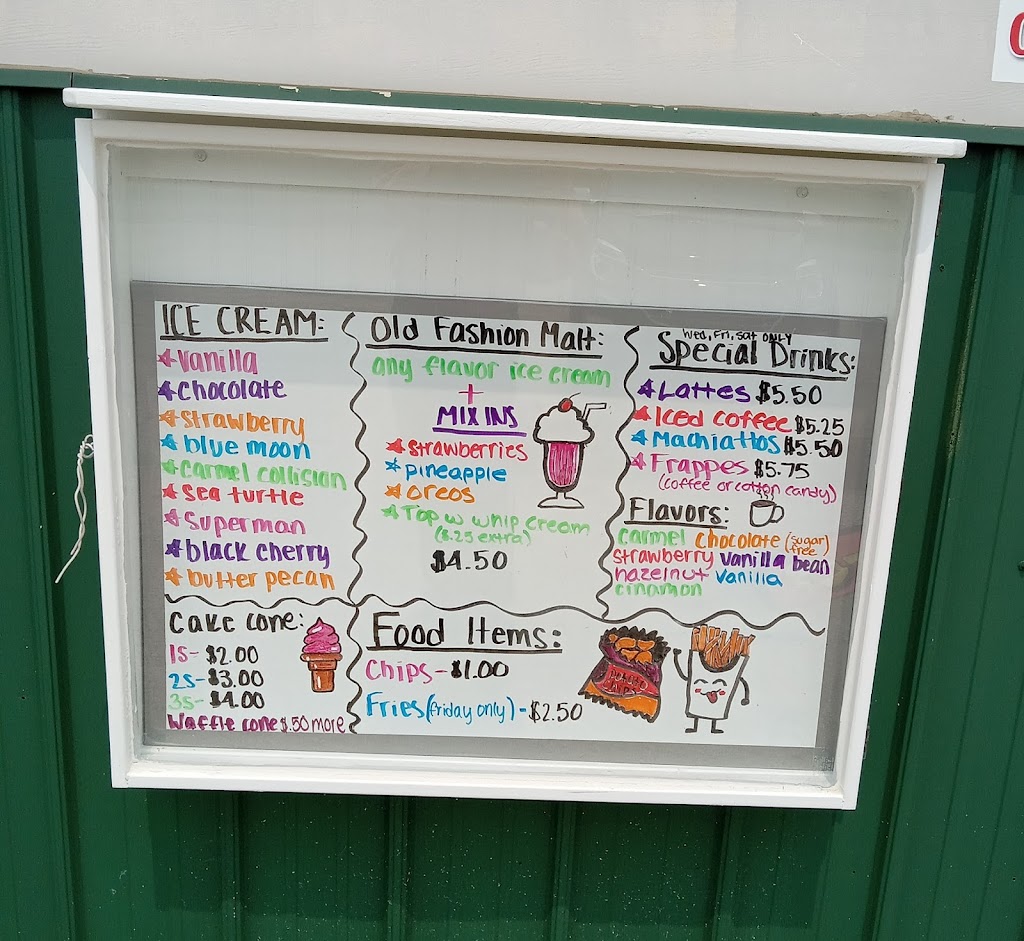 ICE CREAM:
Vanilla
Chocolate
Strawberry
blue moon
Carmel collision
Sea turtle
Superman
black cherry
butter pecan
Old Fashion Malt:
any flavor ice cream
+
MIX INS
Strawberries
pineapple
oreos
Top w whip cream
($.25 extra)
$4.50
Wed, Fri, Sat ONLY
Special Drinks:
Lattes $5.50
Iced coffee $5.25
Machiattos $5.50
Frappes $5.75
(coffee or cotton candy)
Flavors:
Carmel Chocolate (sugar free)
Strawberry Vanilla bean
hazelnut Vanilla
cinamon
Cake Cone:
1s- $2.00
2s- $3.00
3s- $4.00
Waffle cone $.50 more
Food Items:
Chips - $1.00
Fries (friday only) - $2.50